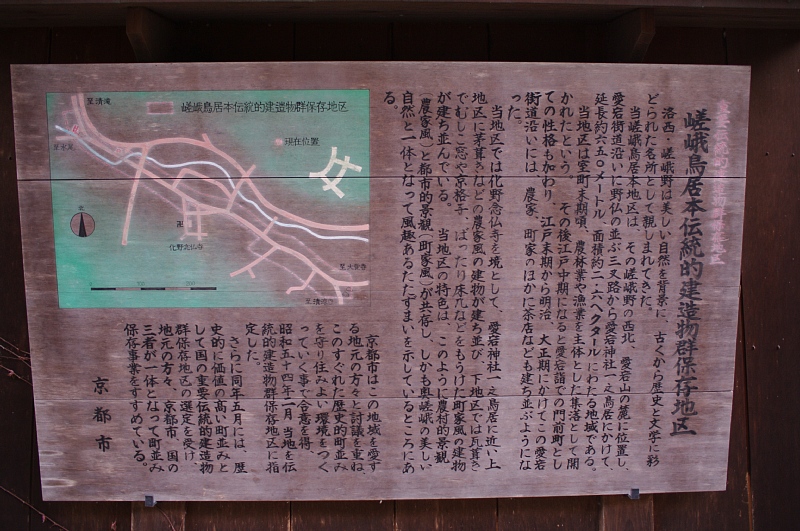 嵯峨鳥居本伝統的建造物群保存地区
洛西・嵯峨野は美しい自然を背景に、古くから歴史と文学に彩
どられた名所として親しまれてきた。
当嵯峨鳥居本地区は、その嵯峨野の西北、愛宕山の麓に位置し、
愛宕街道沿いに野仏の並ぶ三叉路から愛宕神社一之鳥居にかけて、
延長約六五〇メートル、面積約二・六ヘクタールにわたる地域である。
当地区は室町末期頃、農林業や漁業を主体とした集落として開
かれたという。その後江戸中期になると愛宕詣での門前町とし
ての性格も加わり、江戸末期から明治、大正期にかけてこの愛宕
街道沿いには、農家、町家のほかに茶店なども建ち並ぶようにな
った。
当地区では化野念仏寺を境として、愛宕神社一之鳥居に近い上
地区に茅葺きなどの農家風の建物が建ち並び、下地区では瓦葺き
でむしこ窓や京格子、ばったり床几などをもうけた町家風の建物
が建ち並んでいる。当地区の特色は、このように農村的景観
(農家風)と都市的景観(町家風)が共存し、しかも奥嵯峨の美しい
自然と一体となって風趣あるたたずまいを示しているところにあ
る。
京都市はこの地域を愛す
る地元の方々と討議を重ね、
このすぐれた歴史的町並み
を守り住みよい環境をつく
っていく事で合意を得、
昭和五十四年一月当地を伝
統的建造物群保存地区に指
定した。
さらに同年五月には、歴
史的に価値の高い町並みと
して国の重要伝統的建造物
群保存地区の選定を受け、
地元の方々、京都市、国の
三者が一体となって町並み
保存事業をすすめている。
京都市
嵯峨鳥居本伝統的建造物群保存地区
現在位置
至清滝
至水尾
北
卍
化野念仏寺
至大覚寺